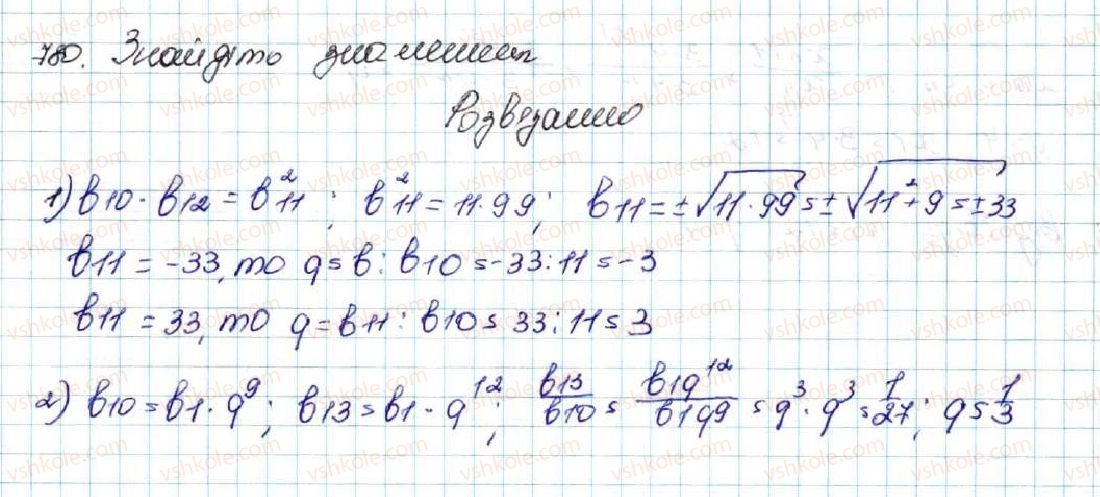 780. Знайдіть знаменник
Розв'язання
1) b10 · b12 = b11²; b11² = 11·99; b11 = ±√11·99 = ±√11²+9 = ±33
b11 = -33, то q = b : b10 = -33 : 11 = -3
b11 = 33, то q = b11 : b10 = 33 : 11 = 3
2) b10 = b1 · q⁹; b13 = b1 · q¹²; b13/b10 = b1q¹²/b1q9 = q³· q³ = 1/27; q = 1/3